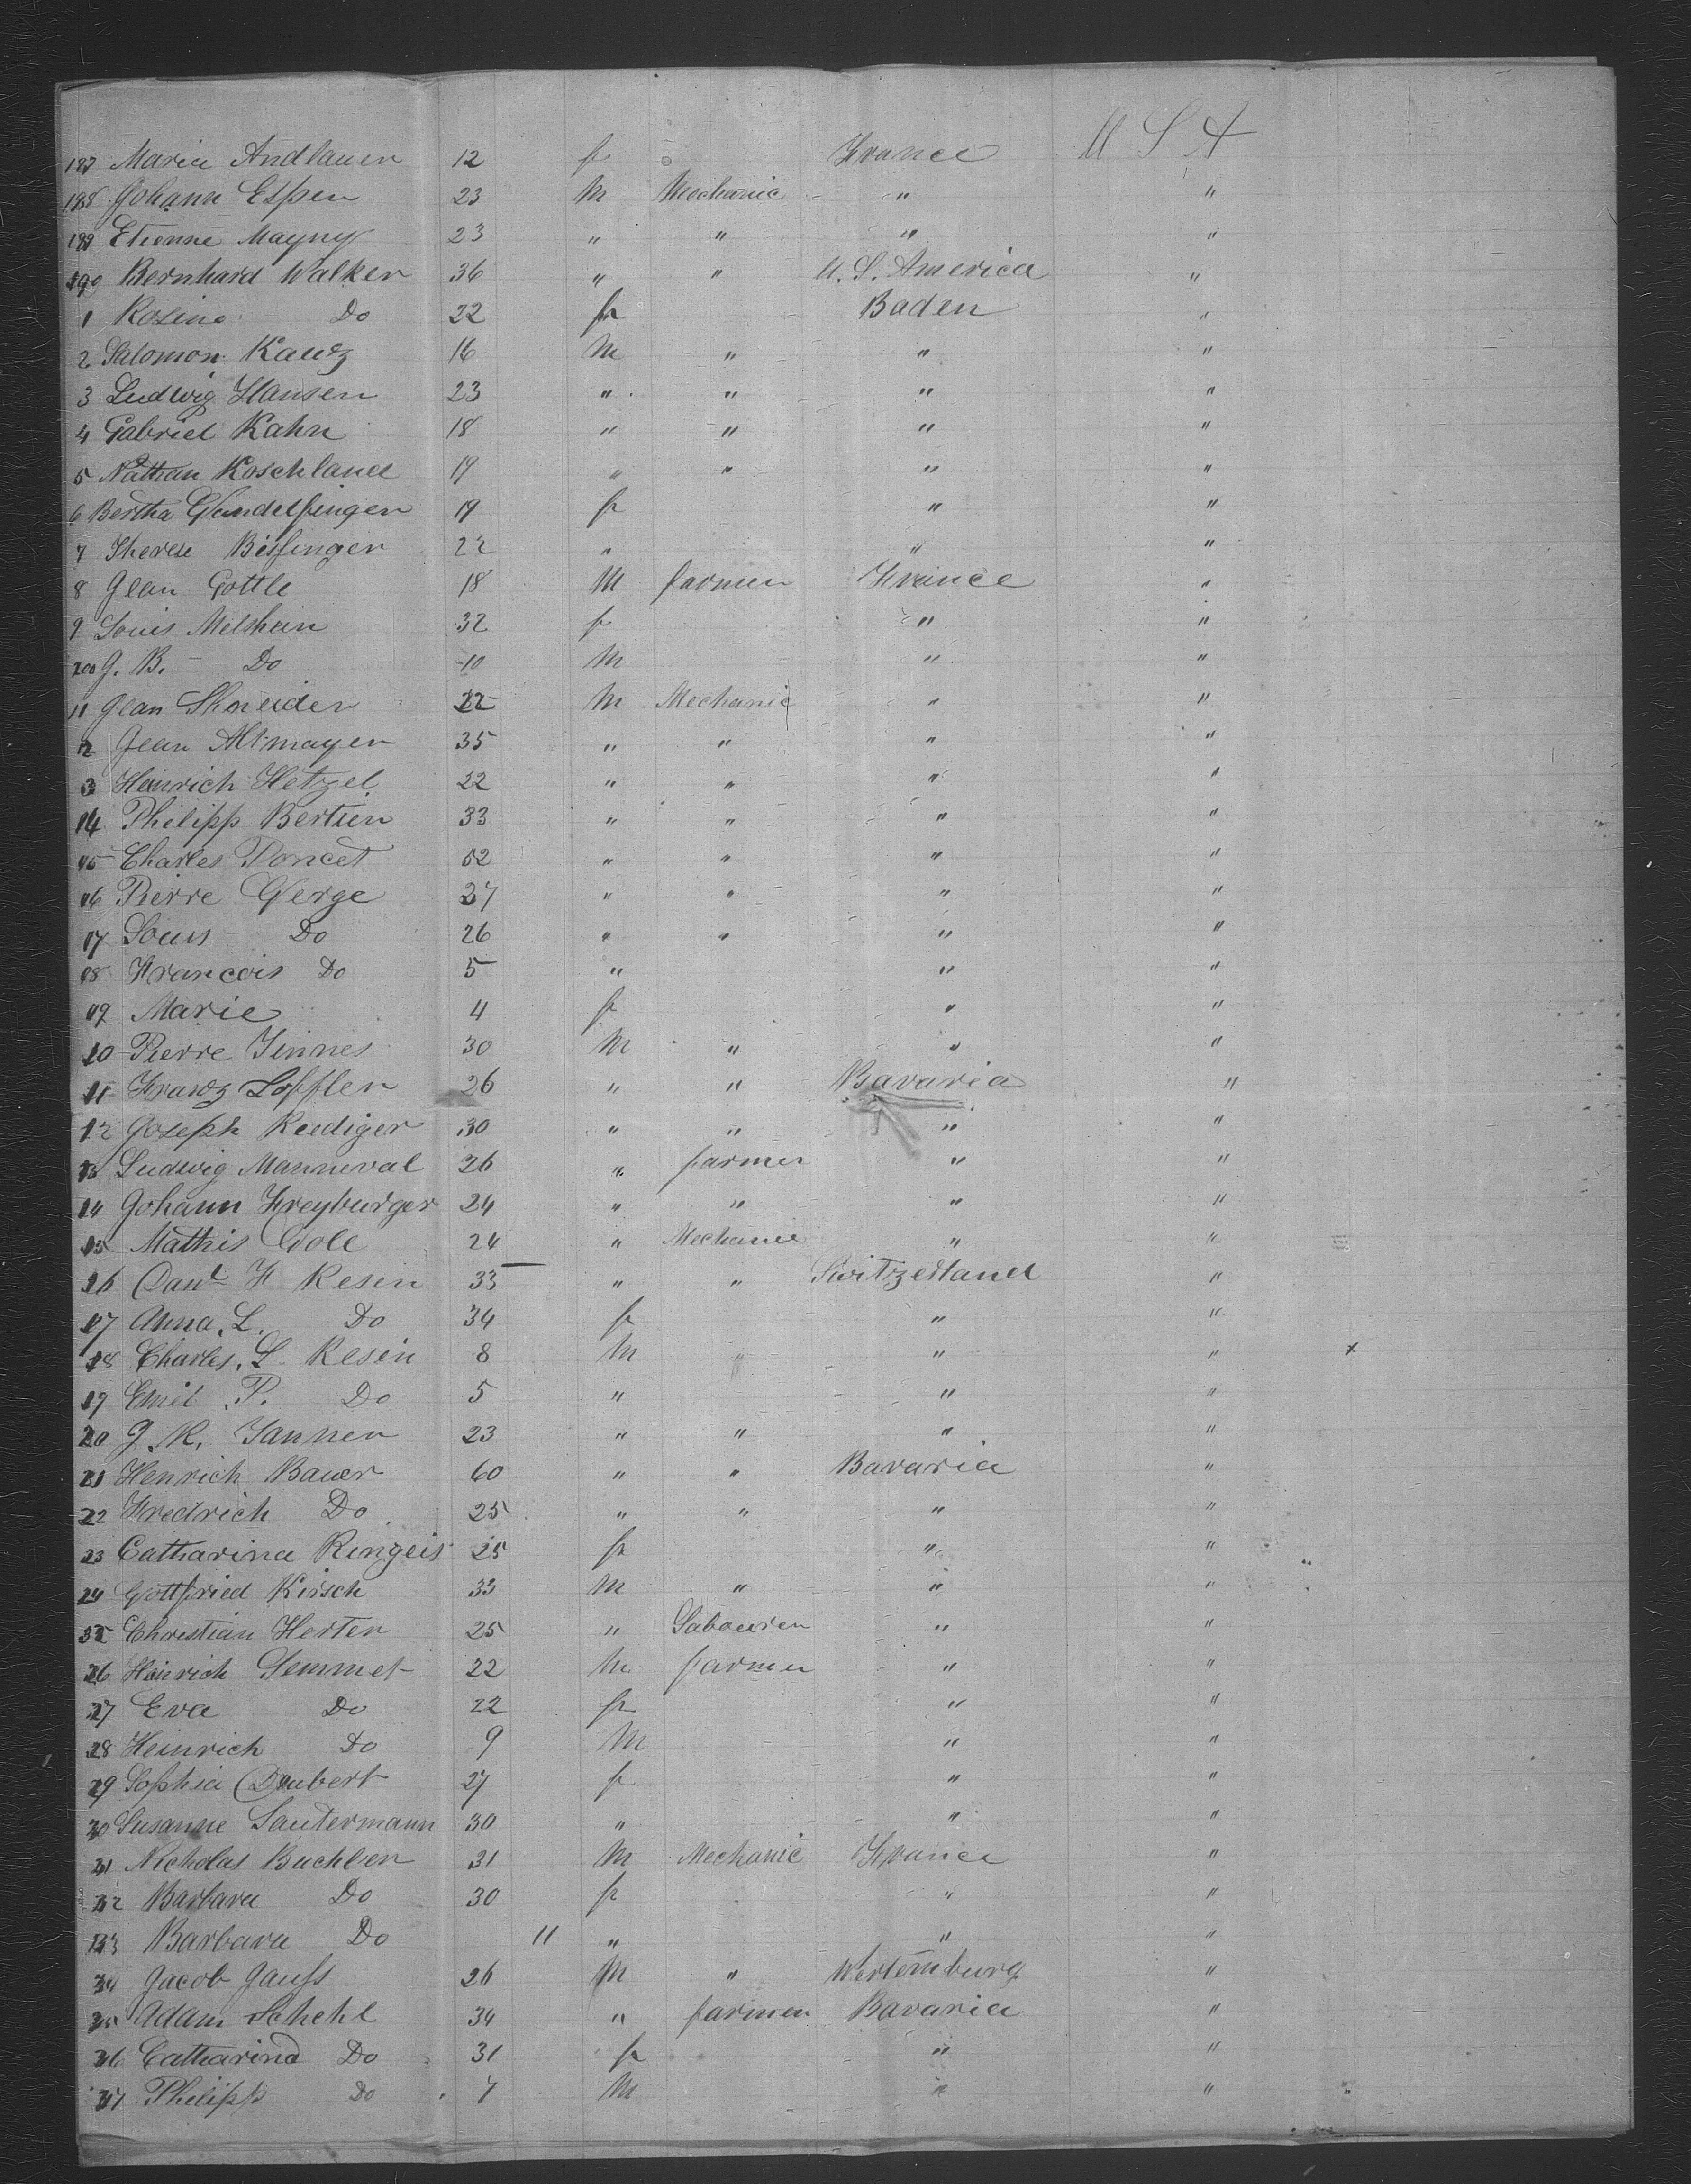 187 Maria Andlauer 12 f France U S A
188 Johann Esper 23 M Mechanic " "
189 Etienne Mayny 23 " " " "
190 Bernhard Walker 36 " " U. S. America "
1 Rosine Do 22 f Baden "
2 Salomon Kautz 16 M " " "
3 Ludwig Hansen 23 " " " "
4 Gabriel Kahn 18 " " " "
5 Nathan Koschland 19 " " " "
6 Bertha Gundelfinger 19 f " "
7 Therese Bissinger 22 " " "
8 Jean Gottle 18 M farmer France "
9 Louis Melshein 32 f " "
200 J. B. Do 10 M " "
11 Jean Shneider 22 M Mechanic " "
12 Jean Altmayer 35 " " " "
3 Heinrich Hetzel 22 " " " "
14 Philipp Bertien 33 " " " "
15 Charles Poncet 52 " " " "
16 Pierre Gerge 27 " " " "
17 Louis Do 26 " " " "
18 Francois Do 5 " " "
19 Marie 4 f " "
10 Pierre Jinnes 30 M " " "
11 Franz Loffler 26 " " Bavaria "
12 Joseph Ruediger 30 " " " "
13 Ludwig Manneval 26 " farmer " "
14 Johann Freyburger 24 " " " "
15 Mathis Gole 24 " Mechanic " "
16 Dawd F Resin 33 " " Switzerland "
17 Anna. L. Do 34 f " "
18 Charles. L. Resin 8 M " " " x
19 Emil P. Do 5 " " "
20 J. R. Janner 23 " " " "
21 Henrich Bauer 60 " " Bavaria "
22 Fredrich Do 25 " " " "
23 Catharina Ringeis 25 f " "
24 Gottfried Kirsch 33 M " " "
25 Christian Herter 25 " Labourer " "
26 Heinrich Semmet 22 M farmer " "
27 Eva Do 22 f " "
28 Heinrich Do 9 M " "
29 Sophia Daubert 27 f " "
30 Susanne Sautermann 30 " " "
31 Nicholas Buchler 31 M Mechanic France "
32 Barbara Do 30 f " "
33 Barbara Do 11 " " "
34 Jacob Gauss 26 M " Wertemburg "
35 Adam Schehl 34 " farmer Bavaria "
36 Catharina Do 31 f " "
37 Philipp Do 7 M " "